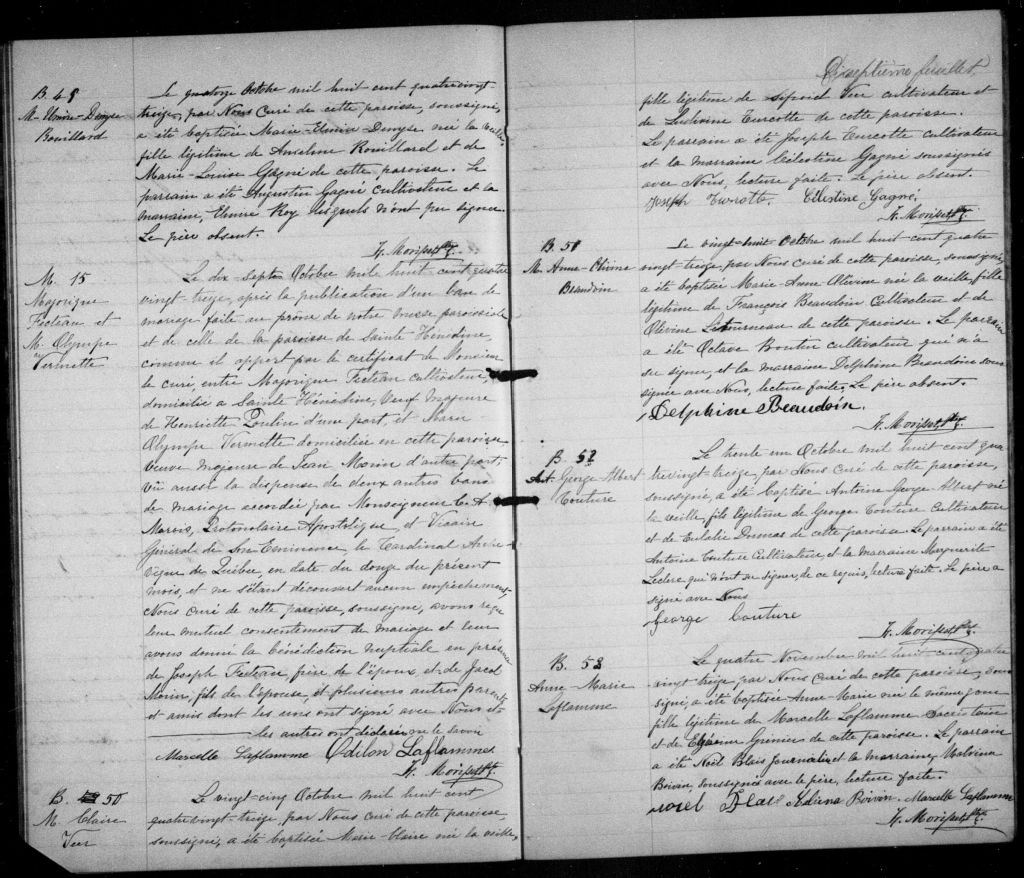 B 48
M. Elmire-Denyse
Rouillard
Le quatorze Octobre mil huit cent quatre vingt
treize, par Nous Curé de cette paroisse, soussigné,
a été baptisée Marie-Elmire-Denyse née la veille,
fille légitime de Anselme Rouillard et de
Marie-Louise Gagné de cette paroisse. Le
parrain a été Augustin Gagné cultivateur et la
marraine, Roy lesquels n'ont pu signer.
Le père absent.
M. 15
Majorique
Fecteau et
M. Olympe
Vermette
Le dix-sept Octobre mil huit cent quatre
vingt-treize, après la publication d'un ban de
mariage faite au prône de notre messe paroissiale
et de celle de la paroisse de Sainte Hénédine,
comme il appert par le certificat de Monsieur
le curé, entre Majorique Fecteau cultivateur,
domicilié à Sainte Hénédine, veuf majeur
de Henriette Poulin d'une part, et Marie
Olympe Vermette domiciliée en cette paroisse
veuve majeure de Jean Morin d'autre part,
vu aussi la dispense de deux autres bans
de mariage accordée par Monseigneur C. A.
Marois, Protonotaire Apostolique, et Vicaire
Générale de Son Eminence, le Cardinal Arche
vêque de Québec, en date du douze du présent
mois, et ne s'étant découvert aucun empêchement
Nous curé de cette paroisse, soussigné, avons reçu
leur mutuel consentement de mariage et leur
avons donné la bénédiction nuptiale en présence
de Joseph Fecteau, frère de l'époux et de Jacob
Morin, fils de l'épouse, et plusieurs autres parents
et amis dont les uns ont signé avec Nous et
les autres ont déclaré ne le savoir
Marcelle Laflamme Odilon Laflamme
B. 50
M. Claire
Le vingt-cinq Octobre mil huit cent
quatre vingt-treize, par Nous Curé de cette paroisse
soussigné, a été baptisée Marie-Claire née la veille,
Dixseptième feuillet,
fille légitime de cultivateur et
de Turcotte de cette paroisse.
Le parrain a été Joseph Turcotte cultivateur
et la marraine Célestine Gagné soussignés
avec Nous, lecture faite. Le père absent.
Joseph Turcotte. Célestine Gagné,
B. 51
M. Anne-Olivine
Beaudoin
Le vingt-huit Octobre mil huit cent quatre
vingt-treize, par Nous Curé de cette paroisse, soussigné,
a été baptisée Marie-Anne Olivine née la veille, fille
légitime de François Beaudoin Cultivateur et de
Olivine Letourneau de cette paroisse. Le parrain
a été Octave Boutin cultivateur qui n'a
su signer, et la marraine Delphine Beaudoin sous
signée avec Nous, lecture faite. Le père absent.
Delphine Beaudoin.
B. 52
Ant. George Albert
Couture
Le trente un Octobre mil huit cent qua
tre vingt-treize, par Nous Curé de cette paroisse,
soussigné, a été baptisé Antoine George Albert né
la veille, fils légitime de Georges Couture Cultivateur
et de Eulalie Dumas de cette paroisse. Le parrain a été
Antoine Couture Cultivateur, et la marraine Marguerite
Leclerc qui n'ont su signer, de ce requis, lecture faite. Le père a
signé avec Nous
George Couture
B. 53
Anne-Marie
Laflamme
Le quatre Novembre mil huit cent quatre
vingt-treize par Nous Curé de cette paroisse, sous
signé, a été baptisée Anne-Marie née le même jour
fille légitime de Marcelle Laflamme Secrétaire
et de Grenier de cette paroisse. Le parrain
a été Noël Blais Journalier et la marraine, Malvina
Boivin, soussignés avec le père, lecture faite.
Noel Blais Boivin. Marcelle Laflamme